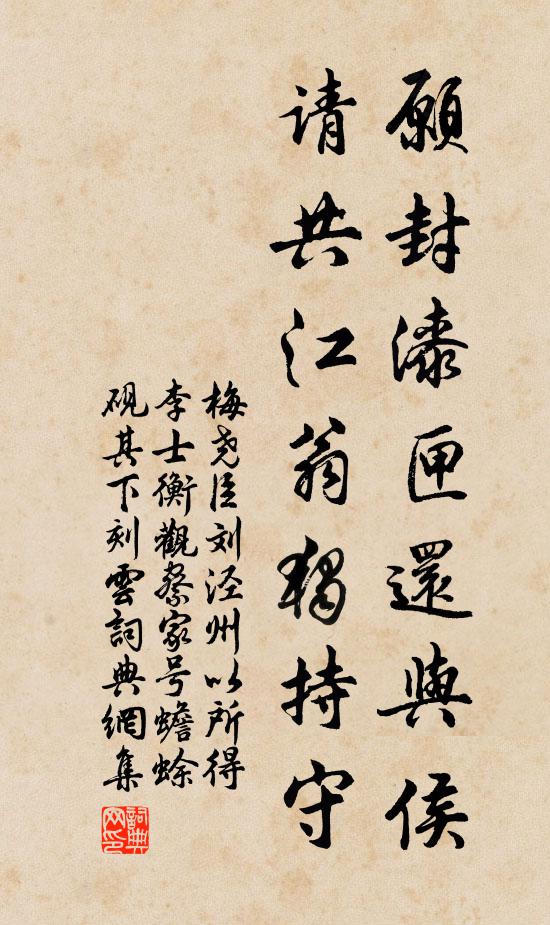 願封漆匣還與侯
请共江翁独持守
梅尧臣刘泾州以所得
李士衡觀察家号蟾蜍
砚其下刻雲詞典網集
詞典网印